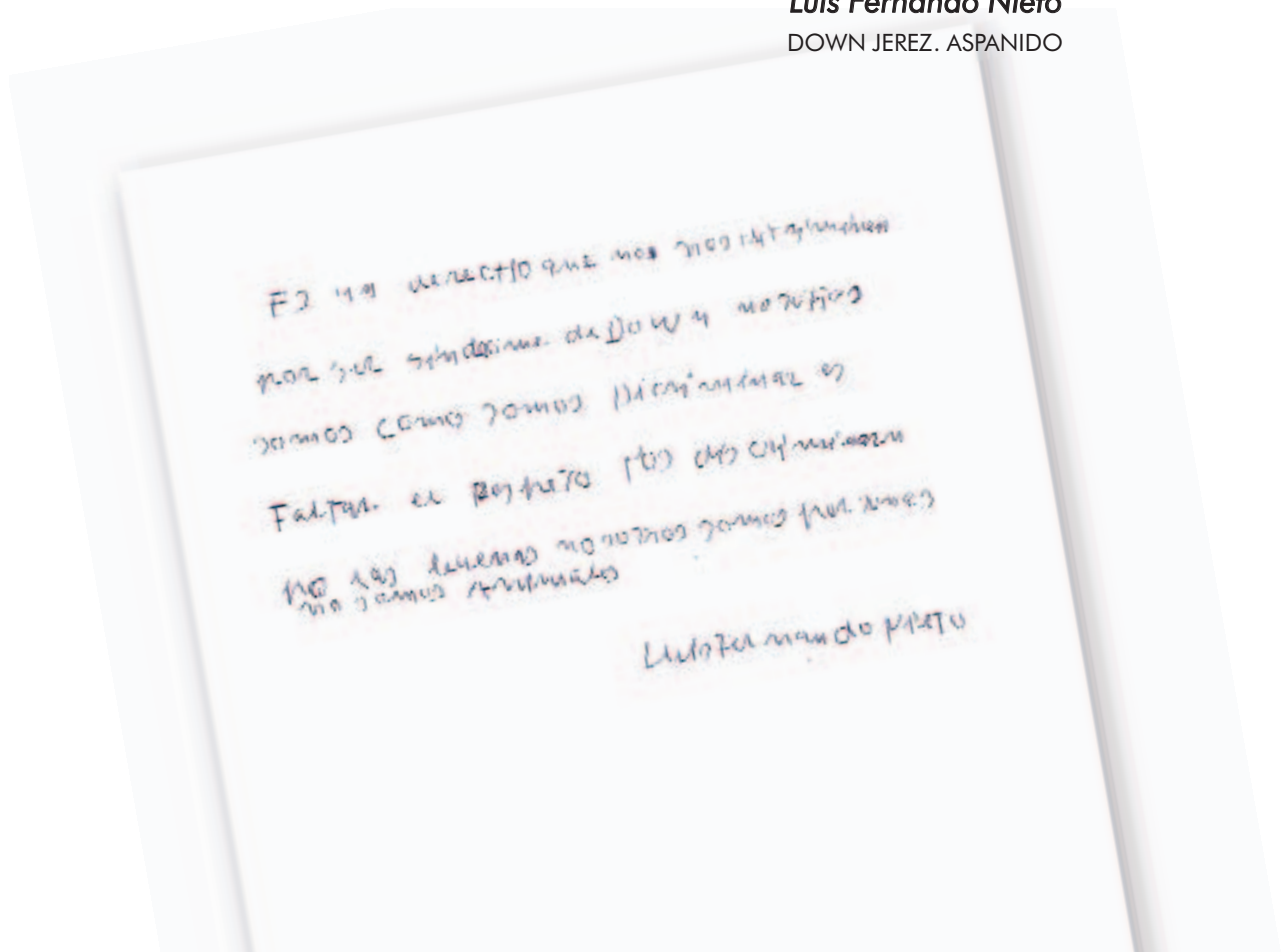 Luis Fernando Nieto
DOWN JEREZ. ASPANIDO
Es un derecho que nos nos
por ser sindrome de Down nosotros
somos como somos Discriminar es
Faltar el Respeto
no nosotros somos personas
no somos Animales
Luis Fernando Nieto